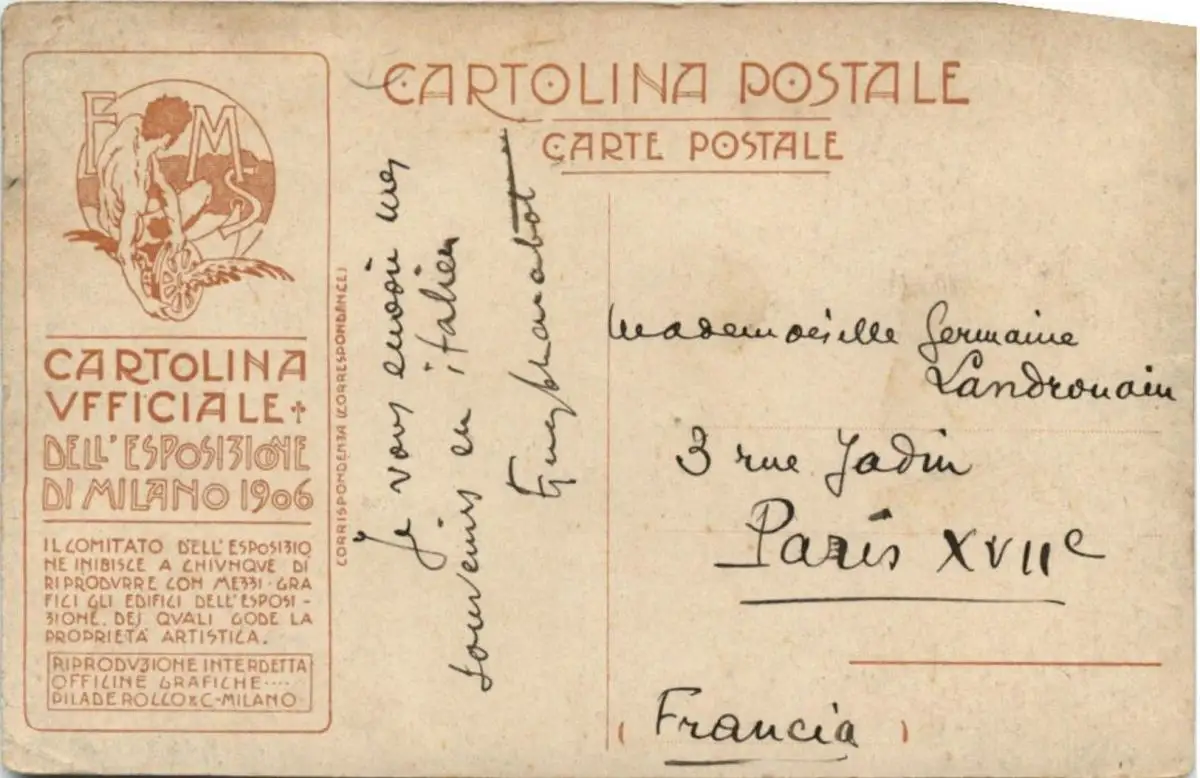 CARTOLINA POSTALE
CARTE POSTALE
E M
S
CARTOLINA
VFFICIALE
DELL'ESPOSIZIONE
DI MILANO 1906
IL COMITATO DELL'ESPOSIZIO
NE INIBISCE A CHIVNQVE DI
RIPRODVRRE CON MEZZI GRA
FICI GLI EDIFICI DELL'ESPOSI-
ZIONE, DEI QVALI GODE LA
PROPRIETÀ ARTISTICA.
RIPRODVZIONE INTERDETTA
OFFICINE GRAFICHE....
PILADE ROLLO & C-MILANO
CORRISPONDENZA (CORRESPONDANCE)
Je vous envoie mes
souvenirs en italien
Mademoiselle Germaine
Landrouain
3 rue Jadin
Paris XVIIe
(Francia)